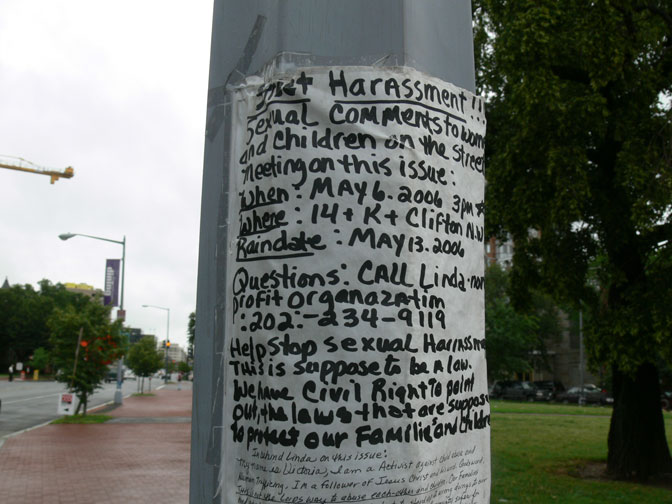 Street Harassment!!
Sexual Comments to wom
and Children on the Street
Meeting on this issue:
When: MAY 6. 2006 3pm
Where: 14 + K + Clifton N.W
Raindate: MAY 13. 2006
Questions: CALL Linda-non
profit organazatim
: 202:-234-9119
Help stop sexual Harrassme
This is suppose to be a law.
We have Civil Right To point
out, the laws that are suppose
to protect our Familie and Children
behind Linda on this issue:
My name is Victoria, I am a Activist against Child abuse and
Human Trafficing. I'm a follower of Jesus Christ and
the Lords way to abuse each other and